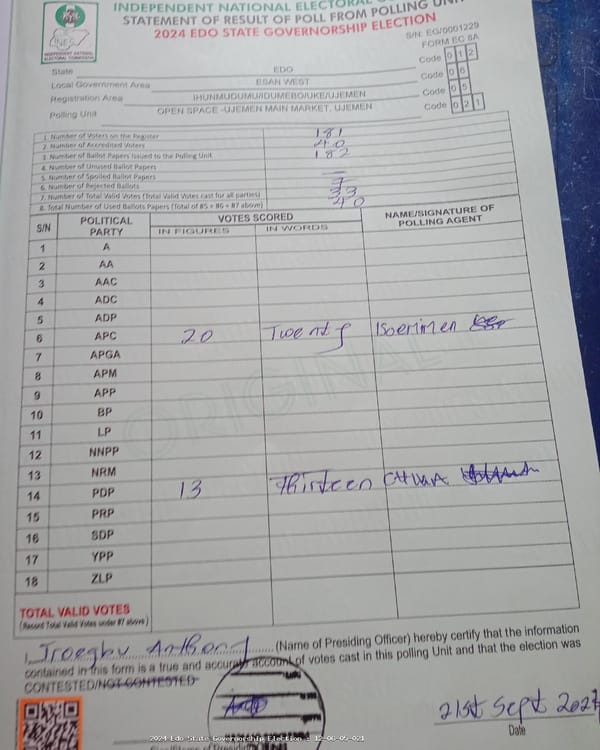 INDEPENDENT NATIONAL ELECTORAL
STATEMENT OF RESULT OF POLL FROM POLLING UNIT
2024 EDO STATE GOVERNORSHIP ELECTION
INDEPENDENT NATIONAL
ELECTORAL COMMISSION
S/N: EG/0001229
FORM EC 8A
State EDO Code 0 1 2
Local Government Area ESAN WEST Code 0 6
Registration Area IHUNMUDUMU/IDUMEBO/UKE/UJEMEN Code 0 5
Polling Unit OPEN SPACE -UJEMEN MAIN MARKET, UJEMEN Code 0 2 1
1. Number of Voters on the Register 181
2. Number of Accredited Voters 40
3. Number of Ballot Papers Issued to the Polling Unit 182
4. Number of Unused Ballot Papers
5. Number of Spoiled Ballot Papers —
6. Number of Rejected Ballots 7
7. Number of Total Valid Votes (Total Valid Votes cast for all parties) 33
8. Total Number of Used Ballots Papers (Total of #5 + #6 + #7 above) 40
S/N POLITICAL PARTY VOTES SCORED NAME/SIGNATURE OF POLLING AGENT
IN FIGURES IN WORDS
1 A
2 AA
3 AAC
4 ADC
5 ADP
6 APC 20 Twenty
7 APGA
8 APM
9 APP
10 BP
11 LP
12 NNPP
13 NRM
14 PDP 13 Thirteen
15 PRP
16 SDP
17 YPP
18 ZLP
ORIGINAL
TOTAL VALID VOTES
(Record Total Valid Votes under #7 above)
I, Iroegbu Anthony (Name of Presiding Officer) hereby certify that the information
contained in this form is a true and accurate account of votes cast in this polling Unit and that the election was
CONTESTED/NOT CONTESTED
21st Sept 2024
Date
2024 Edo State Governorship Election : 12-06-05-021